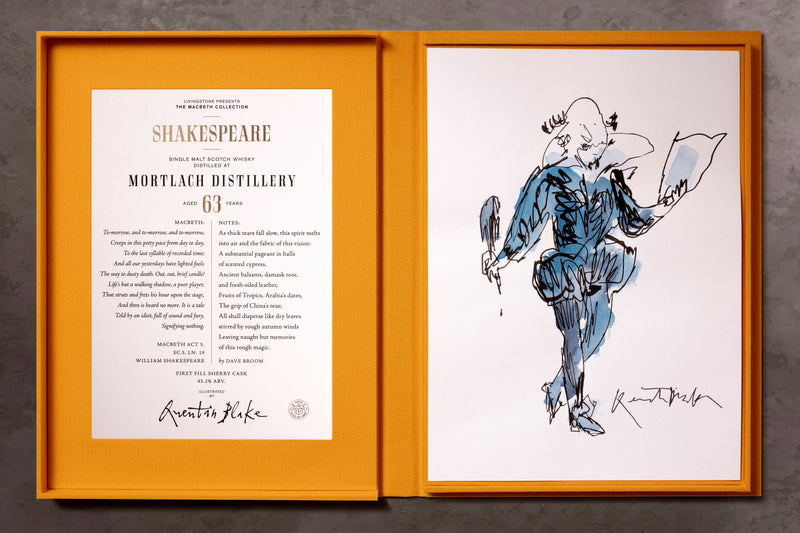 LIVINGSTONE PRESENTS
THE MACBETH COLLECTION
SHAKESPEARE
SINGLE MALT SCOTCH WHISKY
DISTILLED AT
MORTLACH DISTILLERY
AGED 63 YEARS
MACBETH:
To-morrow, and to-morrow, and to-morrow,
Creeps in this petty pace from day to day,
To the last syllable of recorded time;
And all our yesterdays have lighted fools
The way to dusty death. Out, out, brief candle!
Life's but a walking shadow, a poor player,
That struts and frets his hour upon the stage,
And then is heard no more. It is a tale
Told by an idiot, full of sound and fury,
Signifying nothing.
MACBETH ACT 5,
SC.5, LN. 19
WILLIAM SHAKESPEARE
NOTES:
As thick tears fall slow, this spirit melts
into air and the fabric of this vision:
A substantial pageant in halls
of scented cypress.
Ancient balsams, damask rose,
and fresh-oiled leather,
Fruits of Tropics, Arabia's dates,
The grip of China's teas;
All shall disperse like dry leaves
stirred by rough autumn winds
Leaving naught but memories
of this rough magic.
by DAVE BROOM
FIRST FILL SHERRY CASK
43.2% ABV.
ILLUSTRATED
BY
Quentin Blake
Quentin Blake